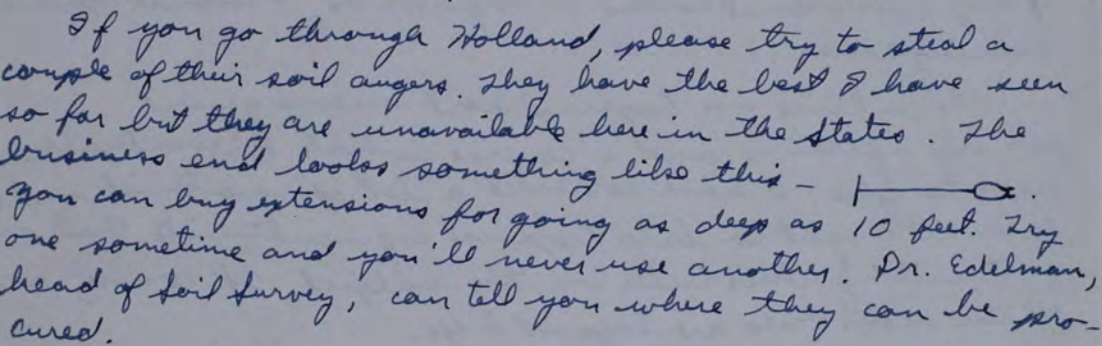 If you go through Holland, please try to steal a
couple of their soil augers. They have the best I have seen
so far but they are unavailable here in the States. The
business end looks something like this - .
You can buy extensions for going as deep as 10 feet. Try
one sometime and you'll never use another. Dr. Edelman,
head of Soil Survey, can tell you where they can be pro-
cured.